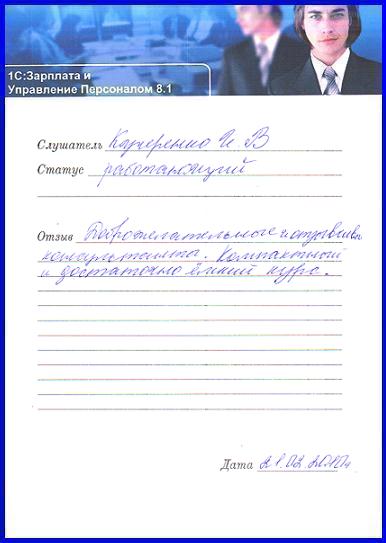 1С:Зарплата и
Управление Персоналом 8.1
Слушатель Кучеренко И. В
Статус работающий
Отзыв Доброжелательные и отзывчивы
консультанты. Компактный
и достаточно ёмкий курс.
Дата 21.02.2010г